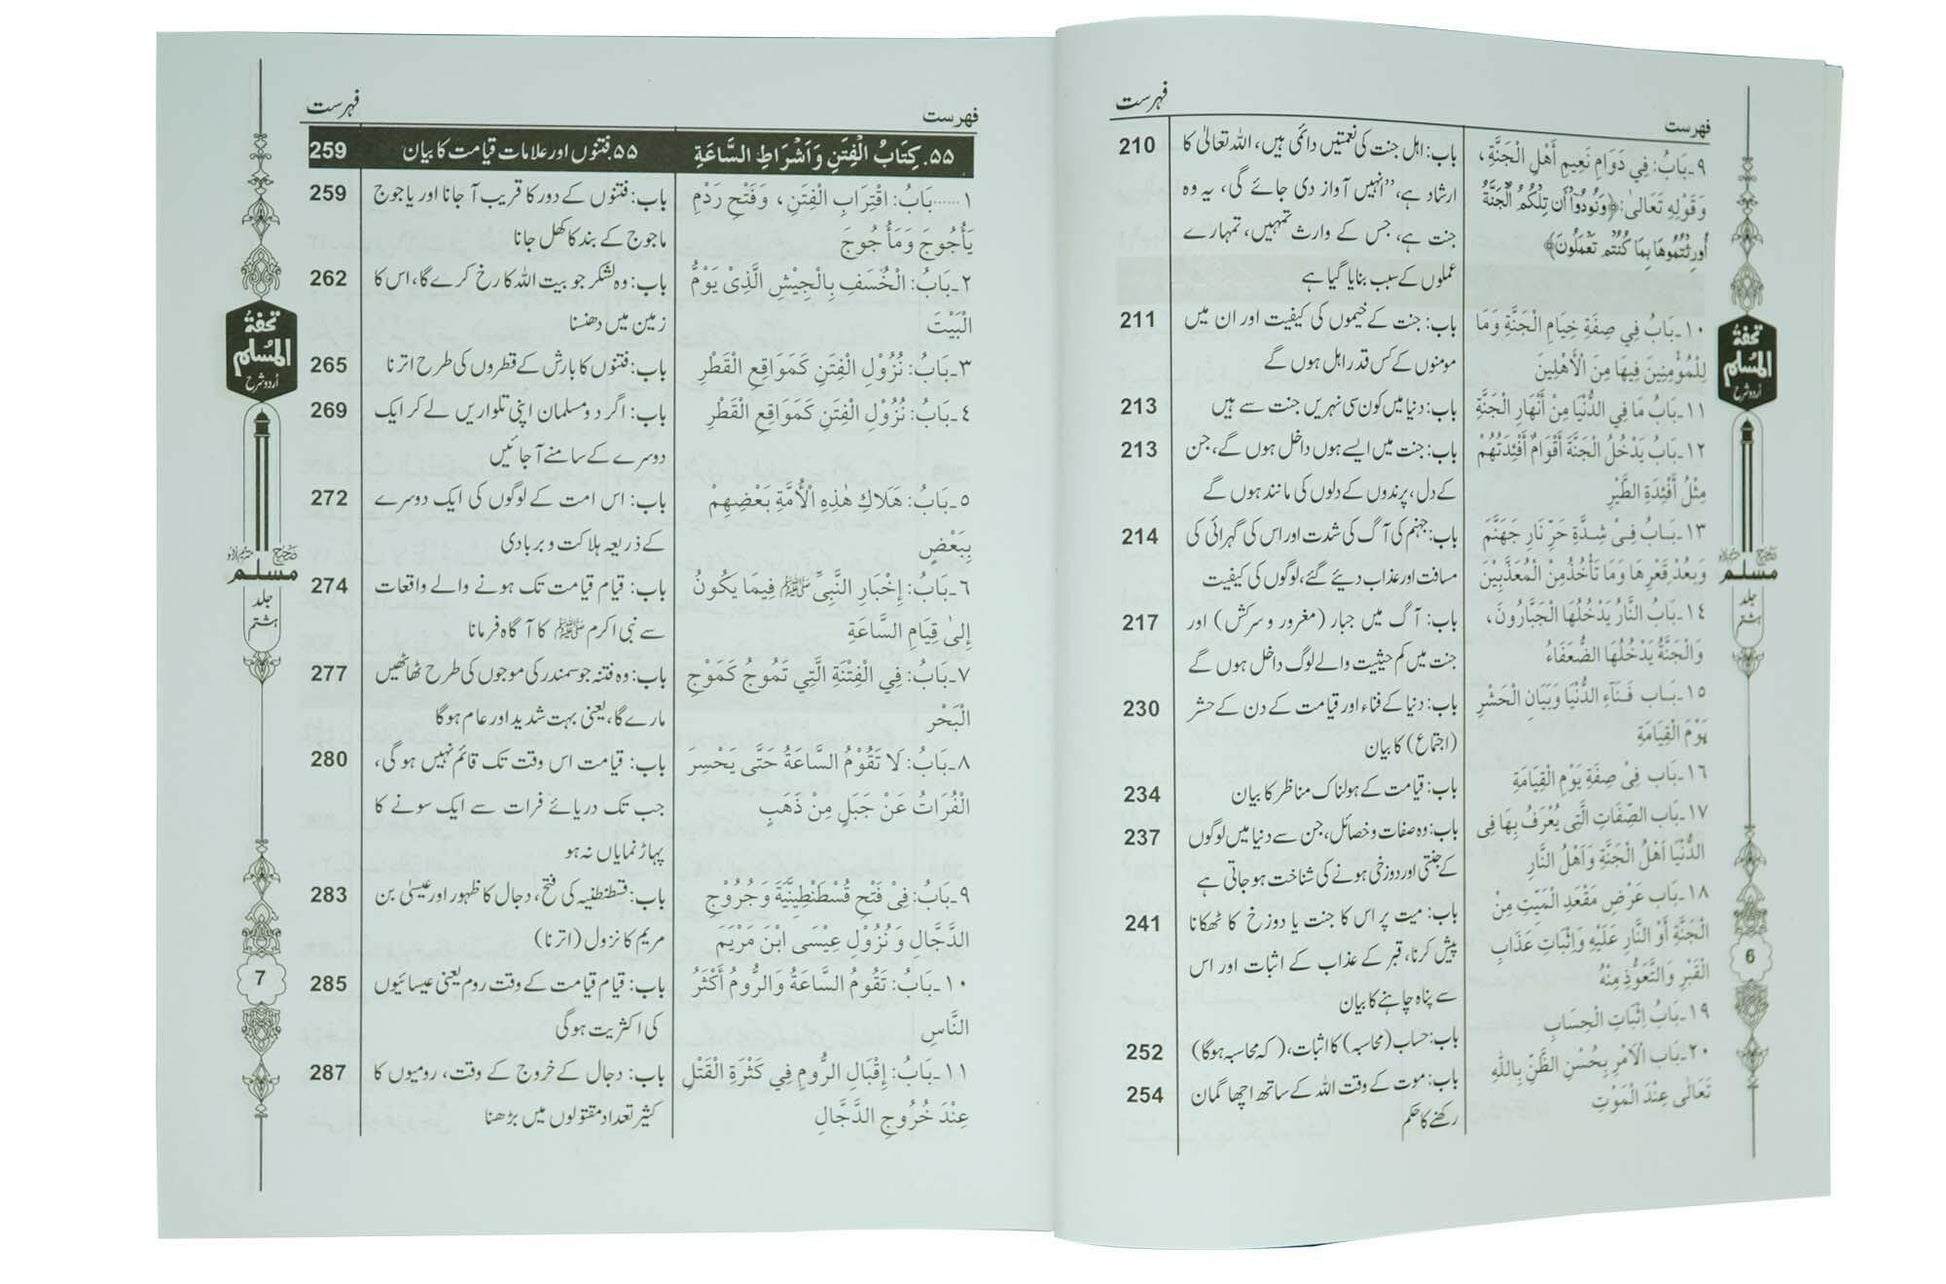 فہرست
فہرست
٩۔بَابُ: فِي دَوَامِ نَعِيمِ أَهْلِ الْجَنَّةِ،
وَقَوْلِهِ تَعَالىٰ:﴿وَنُودُوٓا أَن تِلْكُمُ الْجَنَّةُ
أُورِثْتُمُوهَا بِمَا كُنتُمْ تَعْمَلُونَ﴾
باب: اہل جنت کی نعمتیں دائمی ہیں، اللہ تعالیٰ کا
ارشاد ہے،’’انہیں آواز دی جائے گی، یہ وہ
جنت ہے، جس کے وارث تمہیں، تمہارے
عملوں کے سبب بنایا گیا ہے
210
١٠۔بَابُ فِي صِفَةِ خِيَامِ الْجَنَّةِ وَمَا
لِلْمُؤْمِنِينَ فِيهَا مِنَ الْأَهْلِينَ
باب: جنت کے خیموں کی کیفیت اور ان میں
مومنوں کے کس قدر اہل ہوں گے
211
١١۔بَابُ مَا فِي الدُّنْيَا مِنْ أَنْهَارِ الْجَنَّةِ
باب: دنیا میں کون سی نہریں جنت سے ہیں
213
١٢۔بَابُ يَدْخُلُ الْجَنَّةَ أَقْوَامٌ أَفْئِدَتُهُمْ
مِثْلُ أَفْئِدَةِ الطَّيْرِ
باب: جنت میں ایسے ہوں داخل ہوں گے، جن
کے دل، پرندوں کے دلوں کی مانند ہوں گے
213
١٣۔بَابُ فِیْ شِدَّةِ حَرِّ نَارِ جَهَنَّمَ
وَبُعْدِ قَعْرِهَا وَمَا تَأْخُذُمِنْ الْمُعَذَّبِيْنَ
باب: جہنم کی آگ کی شدت اور اس کی گہرائی کی
مسافت اور عذاب دیئے گئے، لوگوں کی کیفیت
214
١٤۔بَابُ النَّارُ يَدْخُلُهَا الْجَبَّارُونَ،
وَالْجَنَّةُ يَدْخُلُهَا الضُّعَفَاءُ
باب: آگ میں جبار (مغرور و سرکش) اور
جنت میں کم حیثیت والے لوگ داخل ہوں گے
217
١٥۔بَاب فَنَآءِ الدُّنْيَا وَبَيَانِ الْحَشْرِ
يَوْمَ الْقِيَامَةِ
باب: دنیا کے فناء اور قیامت کے دن کے حشر
(اجتماع) کا بیان
230
١٦۔بَاب فِیْ صِفَةِ يَوْمِ الْقِيَامَةِ
باب: قیامت کے ہولناک مناظر کا بیان
234
١٧۔بَاب الصِّفَاتِ الَّتِي يُعْرَفُ بِهَا فِی
الدُّنْيَا اَهْلُ الْجَنَّةِ وَاَهْلُ النَّارِ
باب: وہ صفات و خصائل، جن سے دنیا میں لوگوں
کے جنتی اور دوزخی ہونے کی شناخت ہو جاتی ہے
237
١٨۔بَاب عَرْضِ مَقْعَدِ الْمَيِّتِ مِنْ
الْجَنَّةِ أَوْ النَّارِ عَلَيْهِ وَإِثْبَاتِ عَذَابِ
الْقَبْرِ وَالتَّعَوُّذِ مِنْهُ
باب: میت پر اس کا جنت یا دوزخ کا ٹھکانا
پیش کرنا، قبر کے عذاب کے اثبات اور اس
سے پناہ چاہنے کا بیان
241
١٩۔بَابُ اِثْبَاتِ الْحِسَابِ
باب: حساب (محاسبہ) کا اثبات، (کہ محاسبہ ہوگا)
252
٢٠۔بَاب الْاَمْرِ بِحُسْنِ الظَّنِّ بِاللّٰهِ
تَعَالٰى عِنْدَ الْمَوْتِ
باب: موت کے وقت اللہ کے ساتھ اچھا گمان
رکھنے کا حکم
254
تحفة
المُسلم
اُردو شرح
صحیح
مسلم
جلد
ہشتم
6
فہرست
فہرست
٥٥. كِتَابُ الْفِتَنِ وَاَشْرَاطِ السَّاعَةِ
٥٥. فتنوں اور علامات قیامت کا بیان
259
١......بَابُ: اقْتِرَابِ الْفِتَنِ، وَفَتْحِ رَدْمِ
يَأْجُوجَ وَمَأْجُوجَ
باب: فتنوں کے دور کا قریب آ جانا اور یاجوج
ماجوج کے بند کا کھل جانا
259
٢۔بَابُ: الْخَسَفِ بِالْجِيْشِ الَّذِیْ يَوْمُّ
الْبَيْتَ
باب: وہ لشکر جو بیت اللہ کا رخ کرے گا، اس کا
زمین میں دھنسنا
262
٣۔بَابُ: نُزُوْلِ الْفِتَنِ كَمَوَاقِعِ الْقَطْرِ
باب: فتنوں کا بارش کے قطروں کی طرح اترنا
265
٤۔بَابُ: نُزُوْلِ الْفِتَنِ كَمَوَاقِعِ الْقَطْرِ
باب: اگر دو مسلمان اپنی تلواریں لے کر ایک
دوسرے کے سامنے آ جائیں
269
٥۔بَابُ: هَلَاكِ هٰذِهِ الْأُمَّةِ بَعْضِهِمْ
بِبَعْضٍ
باب: اس امت کے لوگوں کی ایک دوسرے
کے ذریعہ ہلاکت و بربادی
272
٦۔بَابُ: إِخْبَارِ النَّبِیِّ ﷺ فِيمَا يَكُونُ
إِلىٰ قِيَامِ السَّاعَةِ
باب: قیام قیامت تک ہونے والے واقعات
سے نبی اکرم ﷺ کا آگاہ فرمانا
274
٧۔بَابُ: فِي الْفِتْنَةِ الَّتِي تَمُوجُ كَمَوْجِ
الْبَحْرِ
باب: وہ فتنہ جو سمندر کی موجوں کی طرح ٹھاٹھیں
مارے گا، یعنی بہت شدید اور عام ہوگا
277
٨۔بَابُ: لَا تَقُوْمُ السَّاعَةُ حَتَّى يَحْسِرَ
الْفُرَاتُ عَنْ جَبَلٍ مِنْ ذَهَبٍ
باب: قیامت اس وقت تک قائم نہیں ہوگی،
جب تک دریائے فرات سے ایک سونے کا
پہاڑ نمایاں نہ ہو
280
٩۔بَابُ: فِیْ فَتْحِ قُسْطَنْطِينِيَّةَ وَخُرُوْجِ
الدَّجَّالِ وَنُزُوْلِ عِيْسَى ابْنَ مَرْيَمَ
باب: قسطنطنیہ کی فتح، دجال کا ظہور اور عیسیٰ بن
مریم کا نزول (اترنا)
283
١٠۔بَابُ: تَقُومُ السَّاعَةُ وَالرُّومُ أَكْثَرُ
النَّاسِ
باب: قیام قیامت کے وقت روم یعنی عیسائیوں
کی اکثریت ہوگی
285
١١۔بَابُ: إِقْبَالِ الرُّومِ فِي كَثْرَةِ الْقَتْلِ
عِنْدَ خُرُوجِ الدَّجَّالِ
باب: دجال کے خروج کے وقت، رومیوں کا
کثیر تعداد مقتولوں میں بڑھنا
287
تحفة
المُسلم
اُردو شرح
صحیح
مسلم
جلد
ہشتم
7